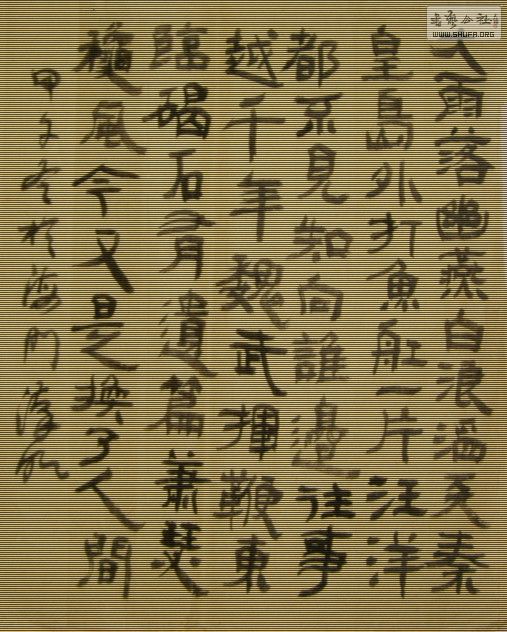 大雨落幽燕白浪滔天秦
皇島外打魚舡一片汪洋
都不見知向誰邊往事
越千年魏武揮鞭東
臨碣石有遺篇蕭瑟
穐風今又是換了人間
甲冬於海門
書藝公社
WWW.SHUFA.ORG